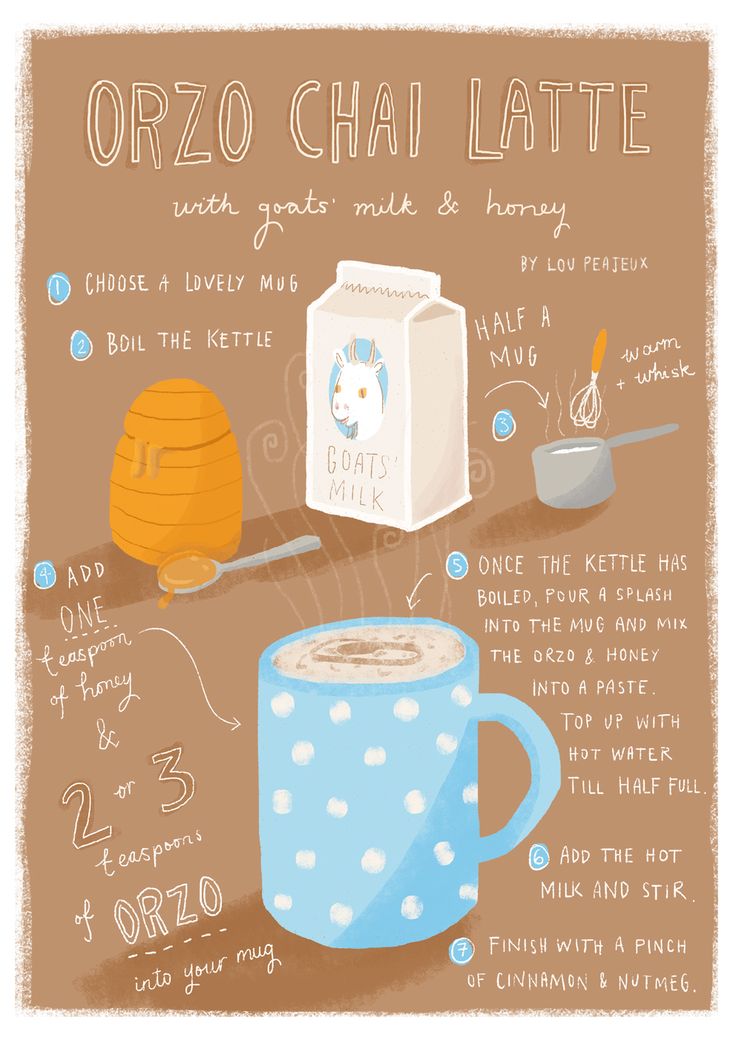 ORZO CHAI LATTE
with goats' milk & honey
BY LOU PEAJEUX
1 CHOOSE A LOVELY MUG
2 BOIL THE KETTLE
GOATS'
MILK
HALF A
MUG
3
warm
+ whisk
4 ADD
ONE
teaspoon
of honey
&
2 or 3
teaspoons
of ORZO
into your mug
5 ONCE THE KETTLE HAS
BOILED, POUR A SPLASH
INTO THE MUG AND MIX
THE ORZO & HONEY
INTO A PASTE.
TOP UP WITH
HOT WATER
TILL HALF FULL.
6 ADD THE HOT
MILK AND STIR.
7 FINISH WITH A PINCH
OF CINNAMON & NUTMEG.